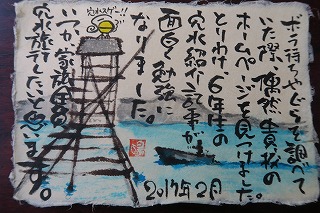 穴水スゲー!!
ボラ待ちやぐらを調べて
いた際、偶然貴校の
ホームページを見つけました。
とりわけ、6年生の
穴水紹介記事が
面白く勉強に
なりました。
いつか家族全員で
穴水旅行したいと思ってます。
2017年2月